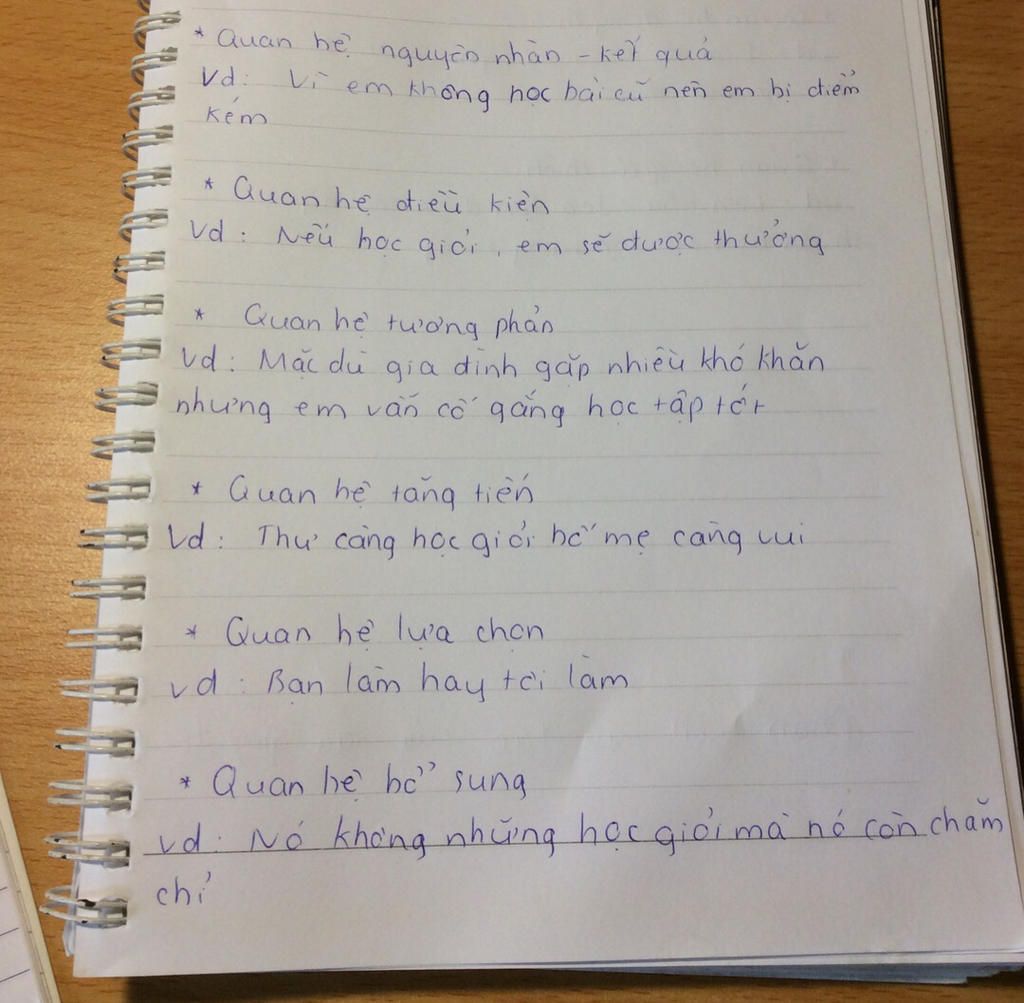 * Quan hệ nguyên nhân - kết quả
Vd: Vì em không học bài cũ nên em bị điểm
kém
* Quan hệ điều kiện
Vd: Nếu học giỏi, em sẽ được thưởng
* Quan hệ tương phản
Vd: Mặc dù gia đình gặp nhiều khó khăn
nhưng em vẫn cố gắng học tập tốt
* Quan hệ tăng tiến
Vd: Thư càng học giỏi bố mẹ càng vui
* Quan hệ lựa chọn
Vd: Bạn làm hay tôi làm
* Quan hệ bổ sung
Vd: Nó không những học giỏi mà nó còn chăm
chỉ